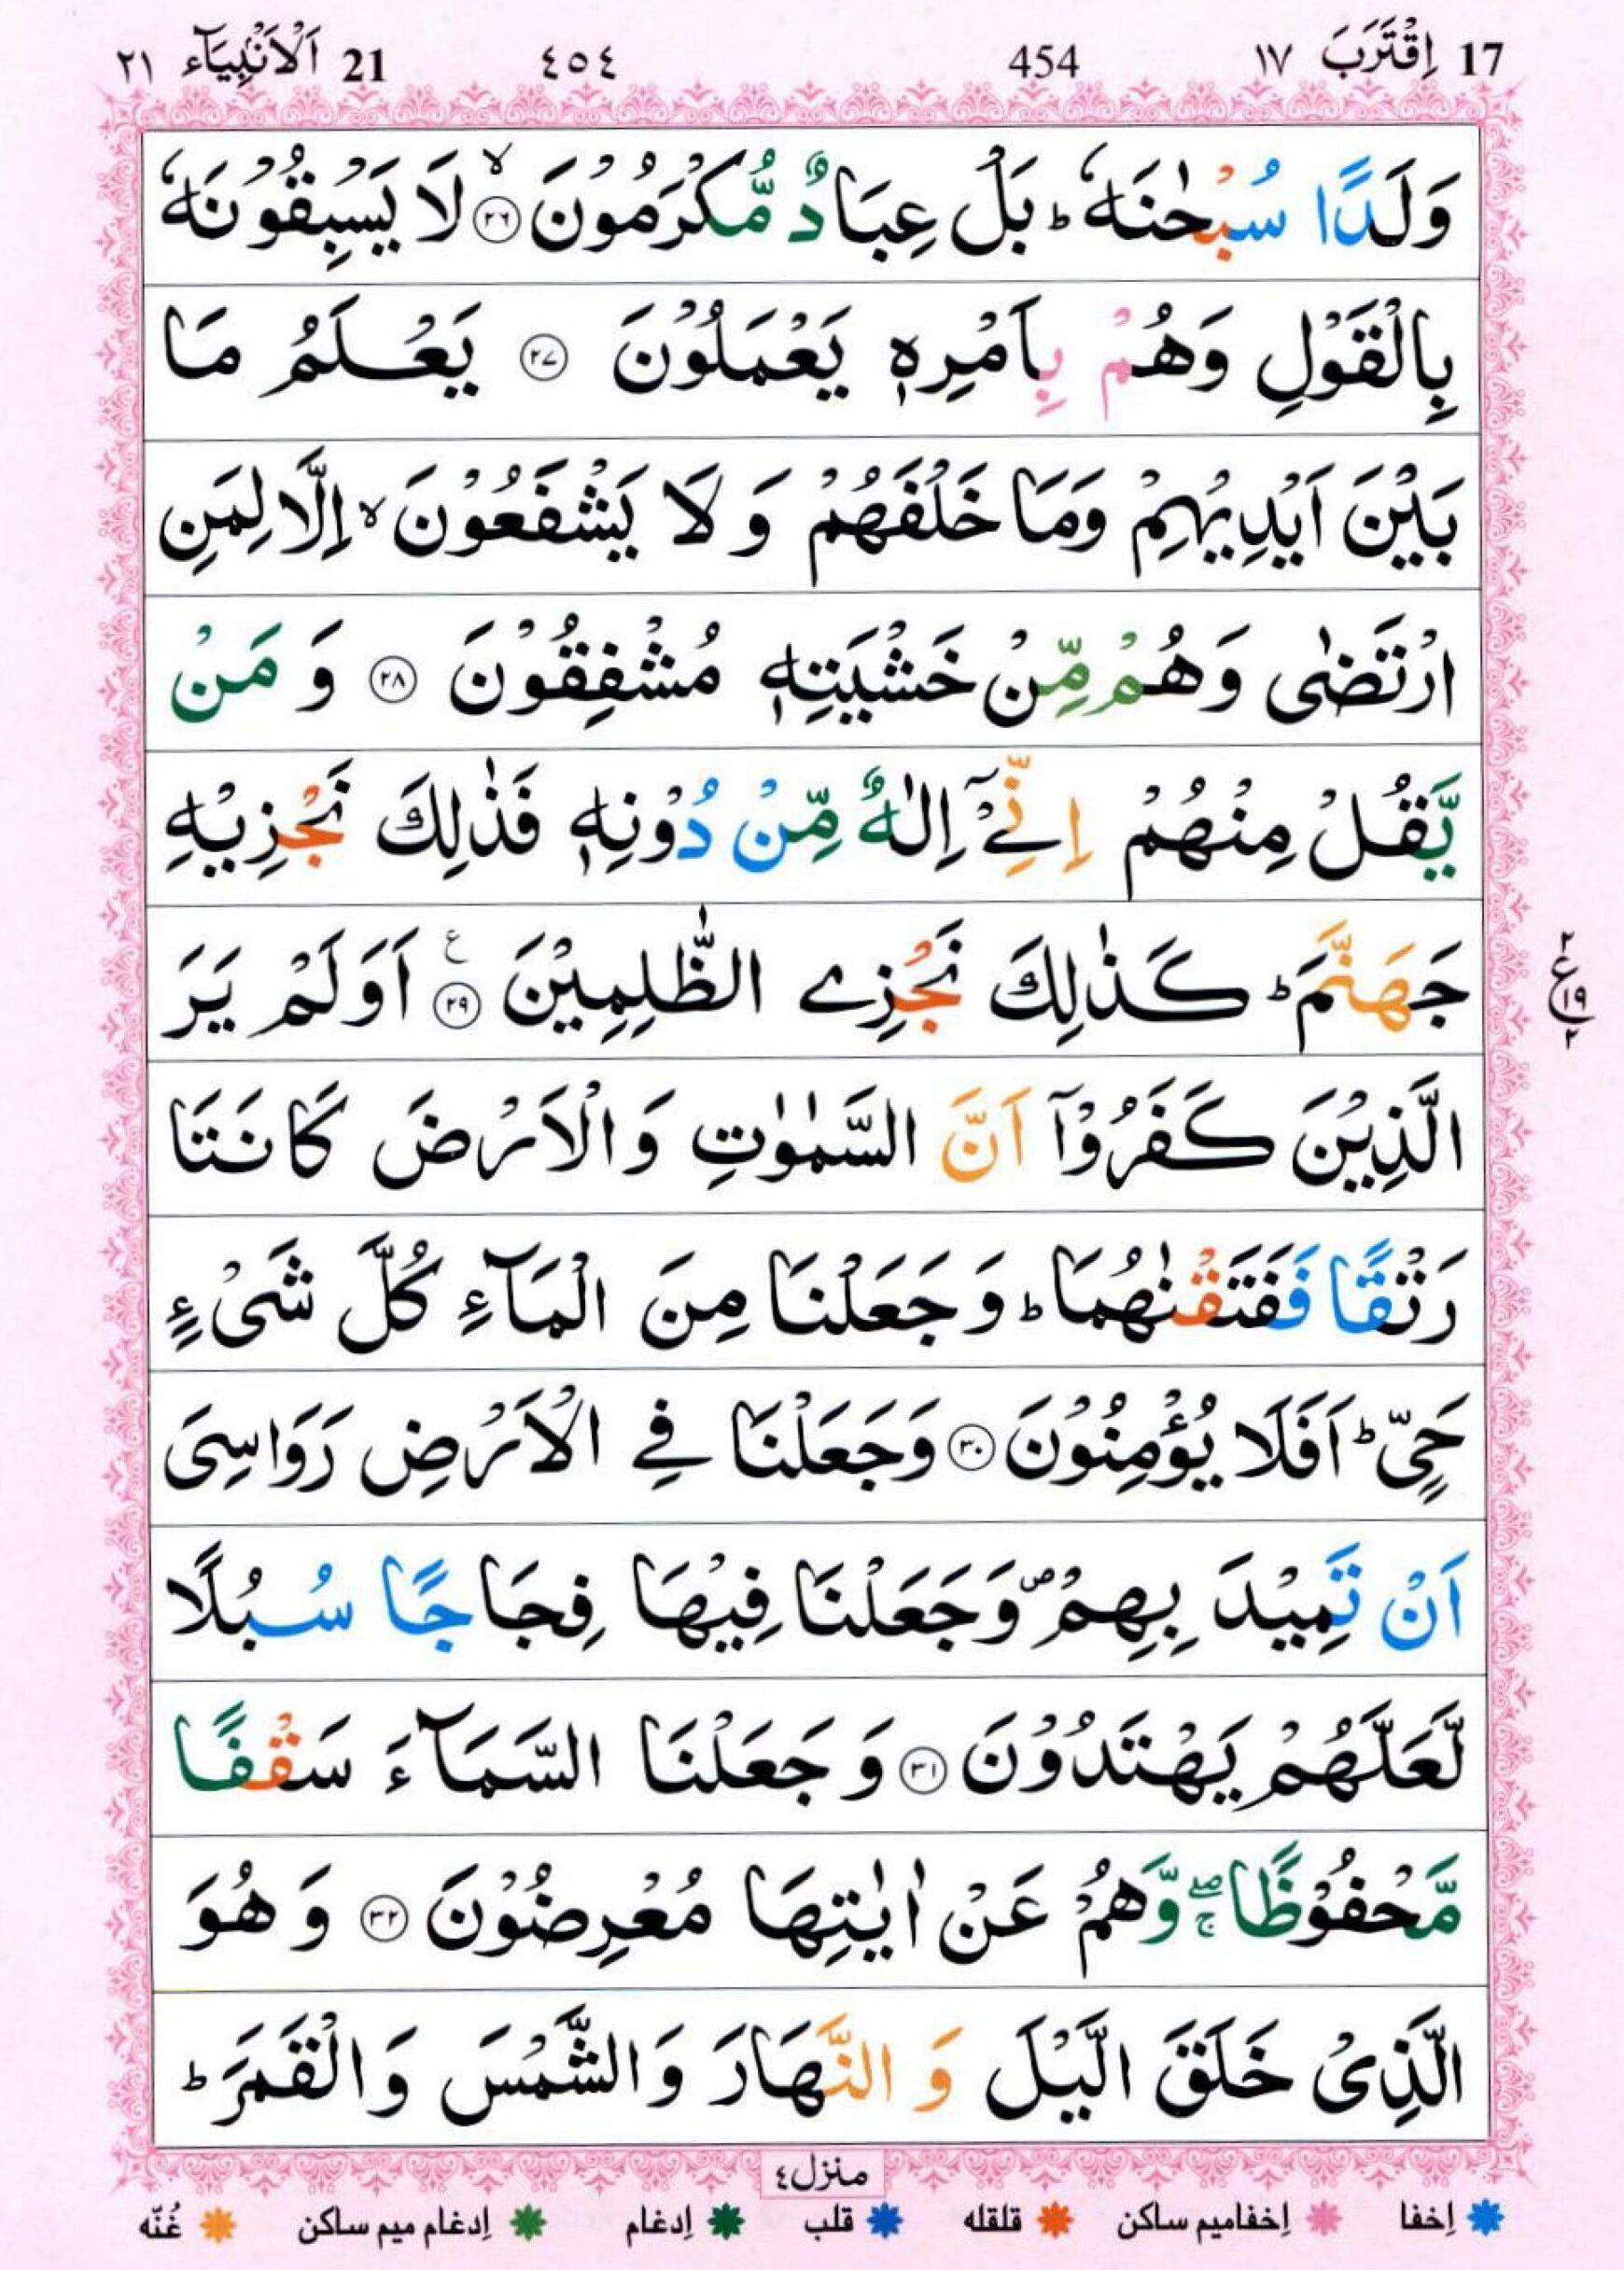 17 اِقْتَرَبَ ١٧ 454 ٤٥٤ 21 اَلْاَنْۢبِيَآء ٢١
وَلَدًا سُبْحٰنَهٗ ؕ بَلْ عِبَادٌ مُّكْرَمُوْنَ ۙ‏﴿۲۶﴾ لَا يَسْبِقُوْنَهٗ
بِالْقَوْلِ وَهُمْ بِاَمْرِهٖ يَعْمَلُوْنَ ﴿۲۷﴾ يَعْلَمُ مَا
بَيْنَ اَيْدِيْهِمْ وَمَا خَلْفَهُمْ وَ لَا يَشْفَعُوْنَ ۙ اِلَّا لِمَنِ
ارْتَضٰى وَهُمْ مِّنْ خَشْيَتِهٖ مُشْفِقُوْنَ ﴿۲۸﴾ وَ مَنْ
يَّقُلْ مِنْهُمْ اِنِّىْۤ اِلٰهٌ مِّنْ دُوْنِهٖ فَذٰلِكَ نَجْزِيْهِ
جَهَنَّمَ ؕ كَذٰلِكَ نَجْزِى الظّٰلِمِيْنَ ﴿۲۹﴾ ع اَوَلَمْ يَرَ
الَّذِيْنَ كَفَرُوْۤا اَنَّ السَّمٰوٰتِ وَالْاَرْضَ كَانَتَا
رَتْقًا فَفَتَقْنٰهُمَا ؕ وَ جَعَلْنَا مِنَ الْمَآءِ كُلَّ شَىْءٍ
حَىٍّ ؕ اَفَلَا يُؤْمِنُوْنَ ﴿۳۰﴾ وَجَعَلْنَا فِى الْاَرْضِ رَوَاسِىَ
اَنْ تَمِيْدَ بِهِمْ ۪ وَجَعَلْنَا فِيْهَا فِجَاجًا سُبُلًا
لَّعَلَّهُمْ يَهْتَدُوْنَ ﴿۳۱﴾ وَ جَعَلْنَا السَّمَآءَ سَقْفًا
مَّحْفُوْظًا ۖۚ وَّهُمْ عَنْ اٰيٰتِهَا مُعْرِضُوْنَ ﴿۳۲﴾ وَ هُوَ
الَّذِىْ خَلَقَ الَّيْلَ وَ النَّهَارَ وَالشَّمْسَ وَالْقَمَرَ ؕ
٢ ع ١٩ ٢
منزل ٤
اِخفا اِخفامیم ساکن قلقله قلب اِدغام اِدغام میم ساکن غُنّه